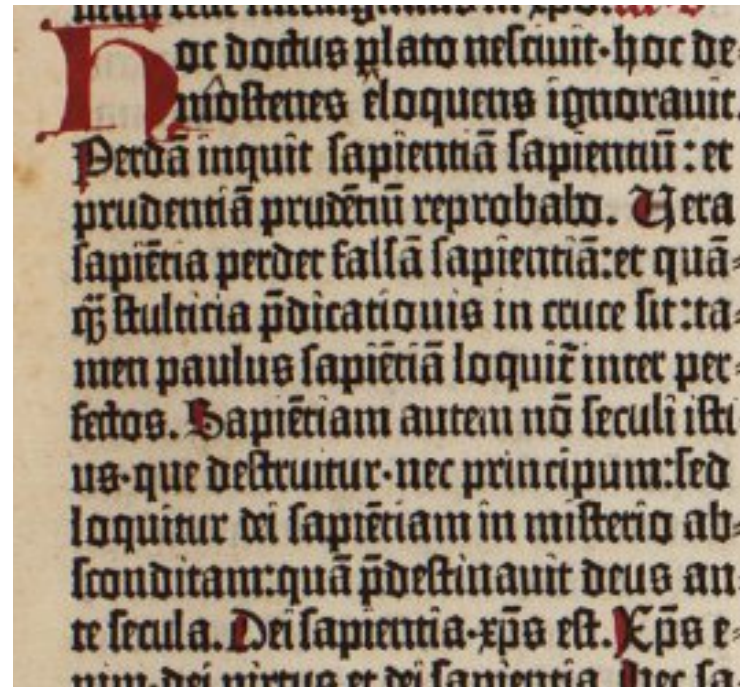 Hoc doctus plato nesciuit·hoc de
mostenes eloquens ignorauit.
Perdā inquit sapientiā sapientiū : et
prudentiā prudētiū reprobabo. Vera
sapiētia perdet falsā sapientiā:et quā⸗
q̄ȝ stulticia p̄dicationis in cruce sit:ta⸗
men paulus sapiētiā loquit̄ inter per⸗
fectos. Sapiētiam autem nō seculi isti
us·que destruitur·nec principum:sed
loquitur dei sapiētiam in misterio ab⸗
sconditam:quā p̄destinauit deus an⸗
te secula. Dei sapientia·xp̄s est. Xp̄s e⸗
nim·dei virtus et dei sapientia. Hec sa⸗